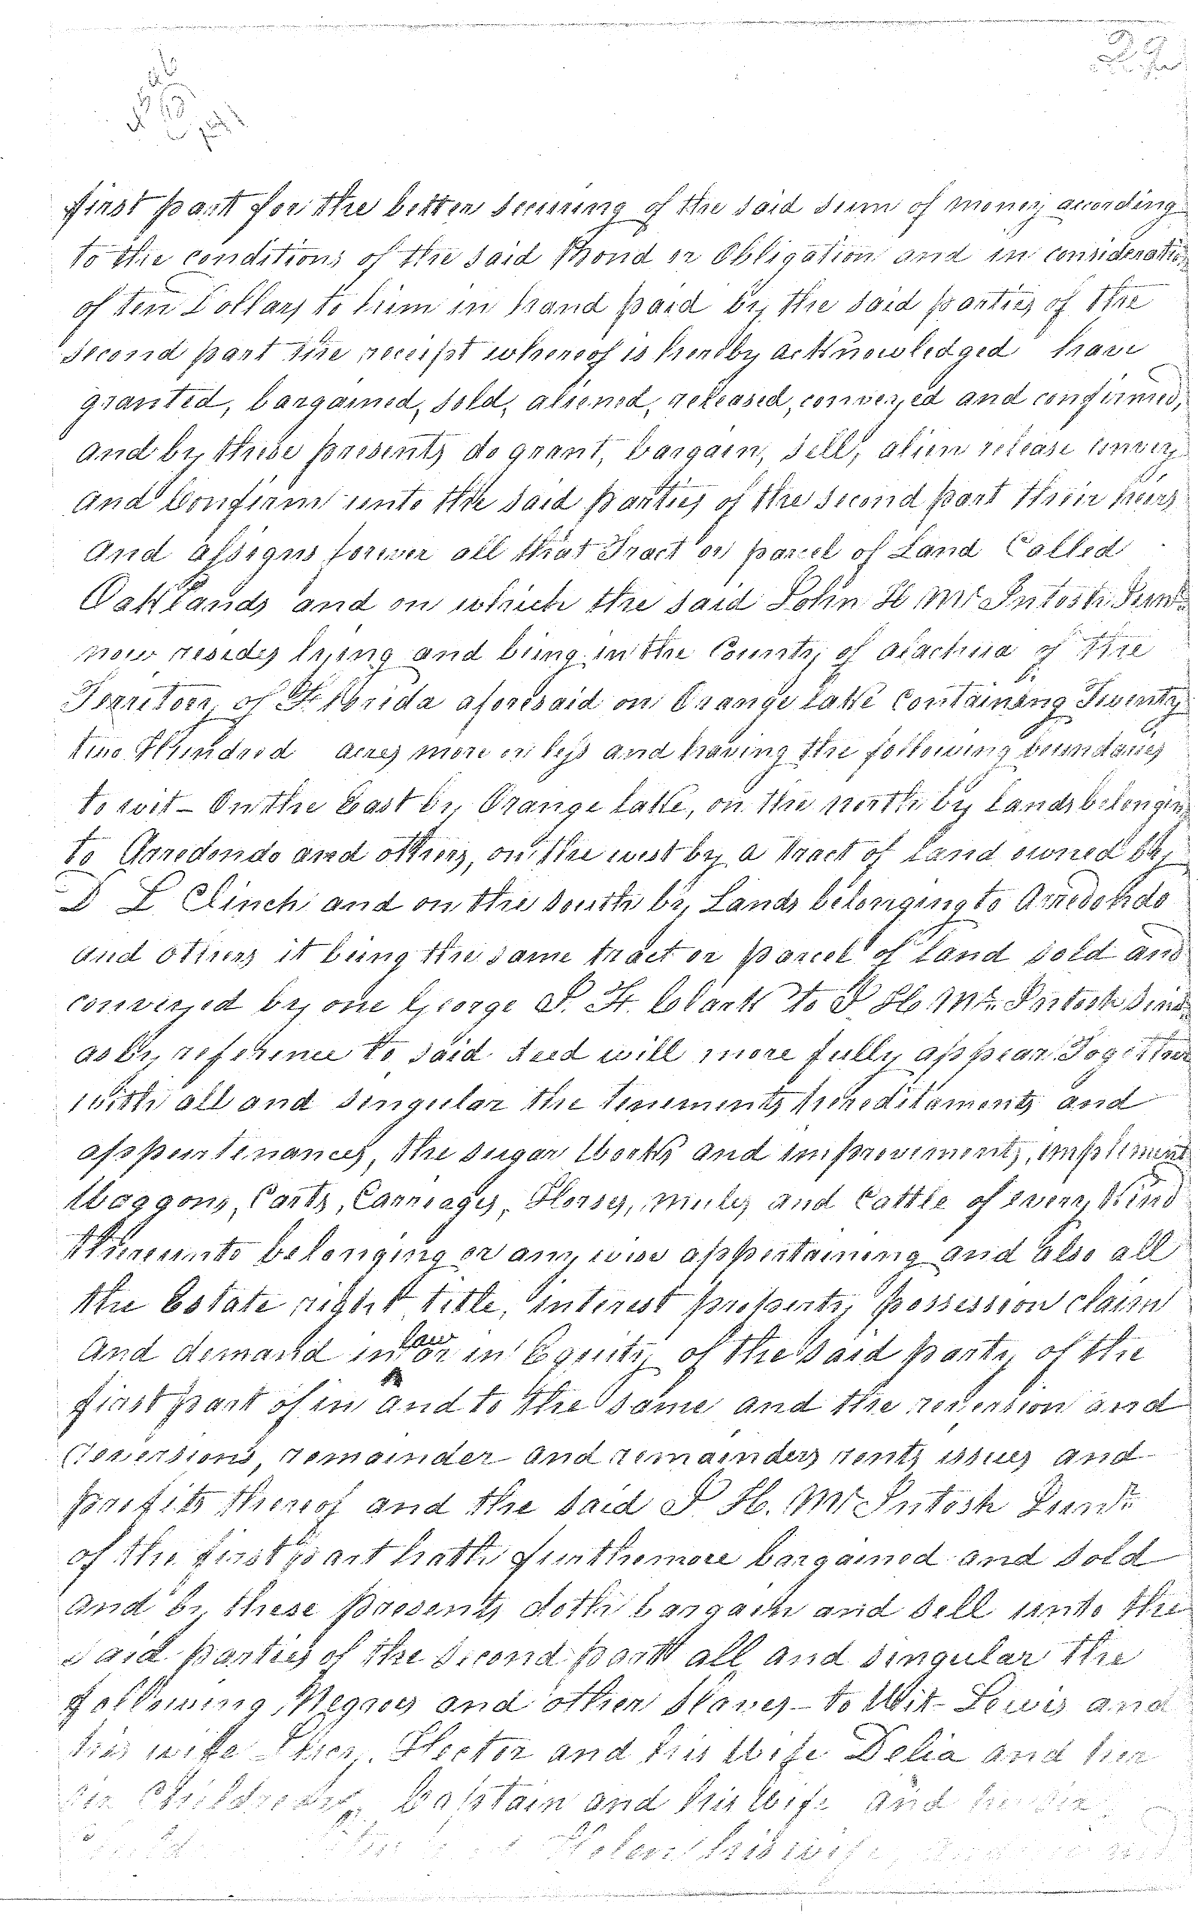 29
first part for the better securing of the said sum of money according
to the conditions of the said Bond or Obligation and in consideration
of ten Dollars to him in hand paid by the said parties of the
second part the receipt whereof is hereby acknowledged have
granted, bargained, sold, aliened, released, conveyed and confirmed,
and by these presents do grant, bargain, sell, alien release convey
and Confirm unto the said parties of the second part their heirs
and assigns forever all that Tract or parcel of Land Called
Oaklands and on which the said John H McIntosh Junr
now resides lying and being in the County of Alachua of the
Territory of Florida aforesaid on Orange lake Containing Twenty
two Hundred acres more or less and having the following boundaries
to wit - On the East by Orange lake, on the north by lands belonging
to Arredondo and others, on the west by a tract of land owned by
D L Clinch and on the south by Lands belonging to Arredondo
and others it being the same tract or parcel of land sold and
conveyed by one George J. F. Clark to J. H. McIntosh Senr
as by reference to said deed will more fully appear Together
with all and singular the tenements hereditaments and
appurtenances, the sugar Works and improvements, implements
Waggons, Carts, Carriages, Horses, mules and Cattle of every Kind
thereunto belonging or any wise appertaining and also all
the Estate right title, interest property possession claim
and demand in law or in Equity of the said party of the
first part of in and to the same and the reversion and
reversions, remainder and remainders rents issues and
profits thereof and the said J. H. McIntosh Junr
of the first part hath furthemore bargained and sold
and by these presents doth bargain and sell unto the
said parties of the second part all and singular the
following Negroes and other slaves - to Wit - Lewis and
his wife Hector and his Wife Delia and her
six Children Captain and his Wife and
Helen his wife